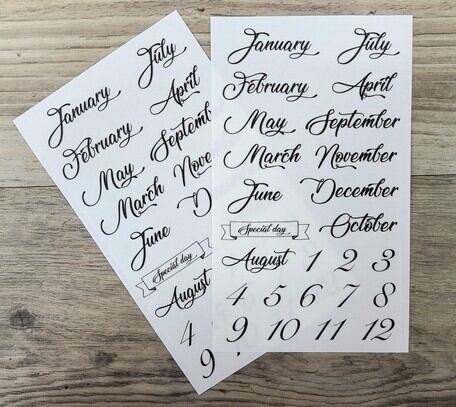 January July
February April
May Septemb
March Nove
June D
Special day
August
4
9
January July
February April
May September
March November
June December
Special day October
August 1 2 3
4 5 6 7 8
9 10 11 12